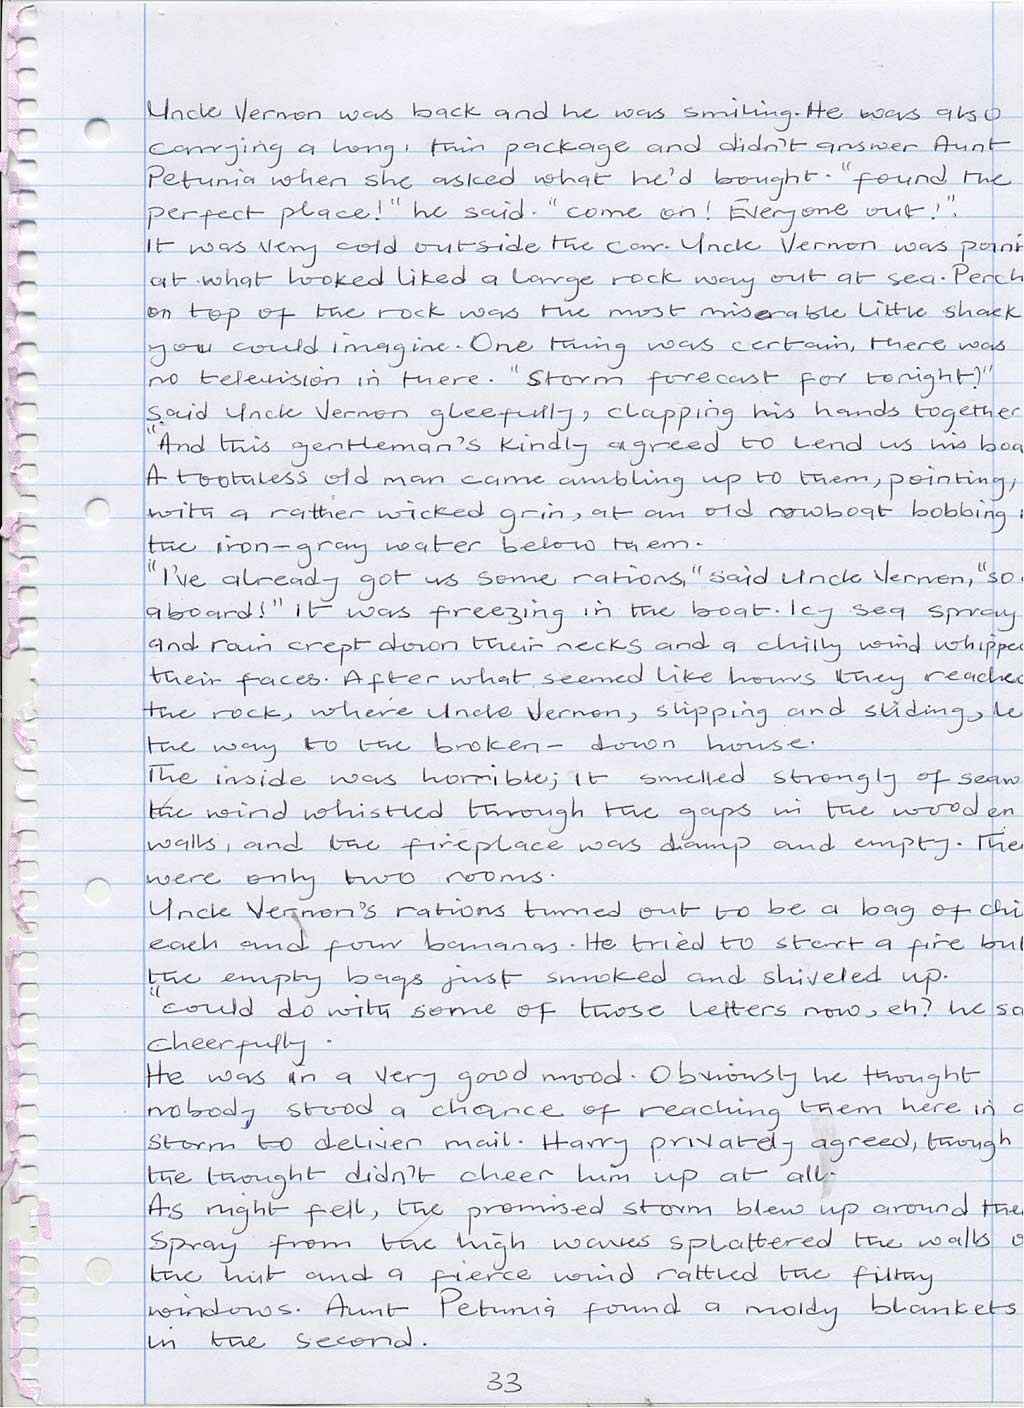 Uncle Vernon was back and he was smiling. He was also
carrying a long, thin package and didn't answer Aunt
Petunia when she asked what he'd bought. "found the
perfect place!" he said. "come on! Everyone out!".
It was very cold outside the car. Uncle Vernon was point
at what looked liked a large rock way out at sea. Perch
on top of the rock was the most miserable little shack
you could imagine. One thing was certain, there was
no television in there. "Storm forecast for tonight!"
Said Uncle Vernon gleefully, clapping his hands together
"And this gentleman's kindly agreed to lend us his boa
A toothless old man came ambling up to them, pointing,
with a rather wicked grin, at an old rowboat bobbing
the iron-gray water below them.
"I've already got us some rations," said Uncle Vernon, "so
aboard!" it was freezing in the boat. Icy sea spray
and rain crept down their necks and a chilly wind whipped
their faces. After what seemed like hours they reached
the rock, where Uncle Vernon, slipping and sliding, le
the way to the broken- down house.
The inside was horrible; it smelled strongly of seaw
the wind whistled through the gaps in the wooden
walls, and the fireplace was damp and empty. The
were only two rooms.
Uncle Vernon's rations turned out to be a bag of chi
each and four bananas. He tried to start a fire but
the empty bags just smoked and shiveled up.
"could do with some of those letters now, eh? he sa
cheerfully.
He was in a very good mood. Obviously he thought
nobody stood a chance of reaching them here in a
storm to deliver mail. Harry privately agreed, though
the thought didn't cheer him up at all.
As night fell, the promised storm blew up around the
Spray from the high waves splattered the walls o
the hut and a fierce wind rattled the filthy
windows. Aunt Petunia found a moldy blankets
in the second.
33